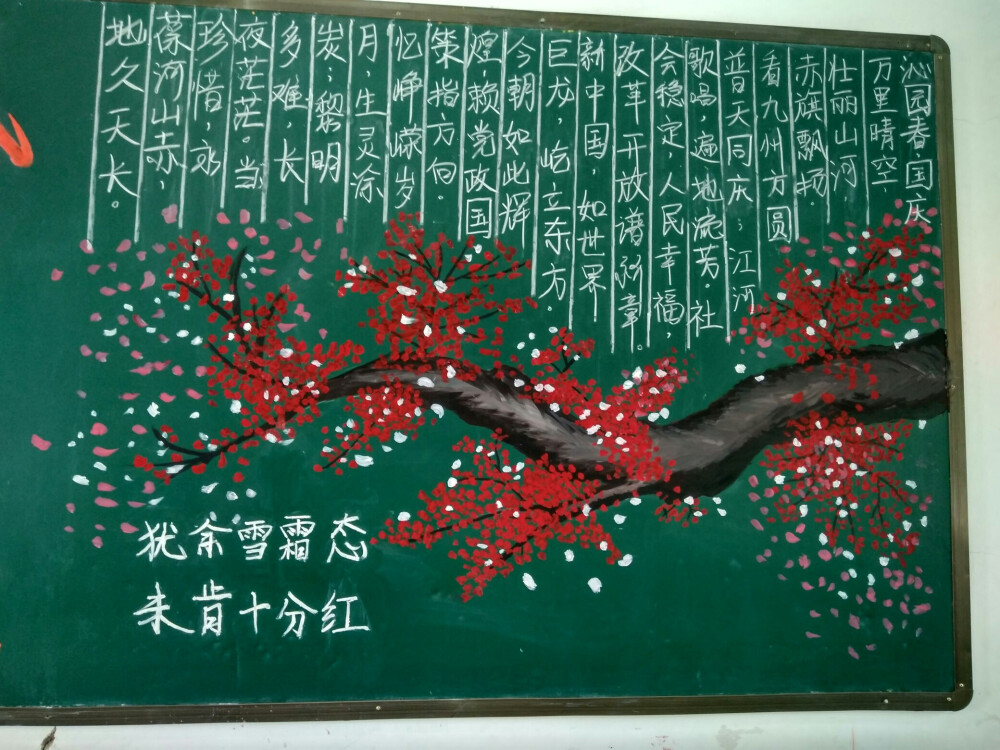 沁园春·国庆
万里晴空，
壮丽山河
赤旗飘扬，
看九州方圆
普天同庆；江河
歌唱，遍地流芳。社
会稳定，人民幸福，
改革开放谱新章。
新中国，如世界
巨龙，屹立东方。
今朝如此辉
煌，赖党政国
策指方向。
忆峥嵘岁
月，生灵涂
炭；黎明
多难，长
夜茫茫。当
珍惜，永
葆河山赤，
地久天长。
犹余雪霜态
未肯十分红